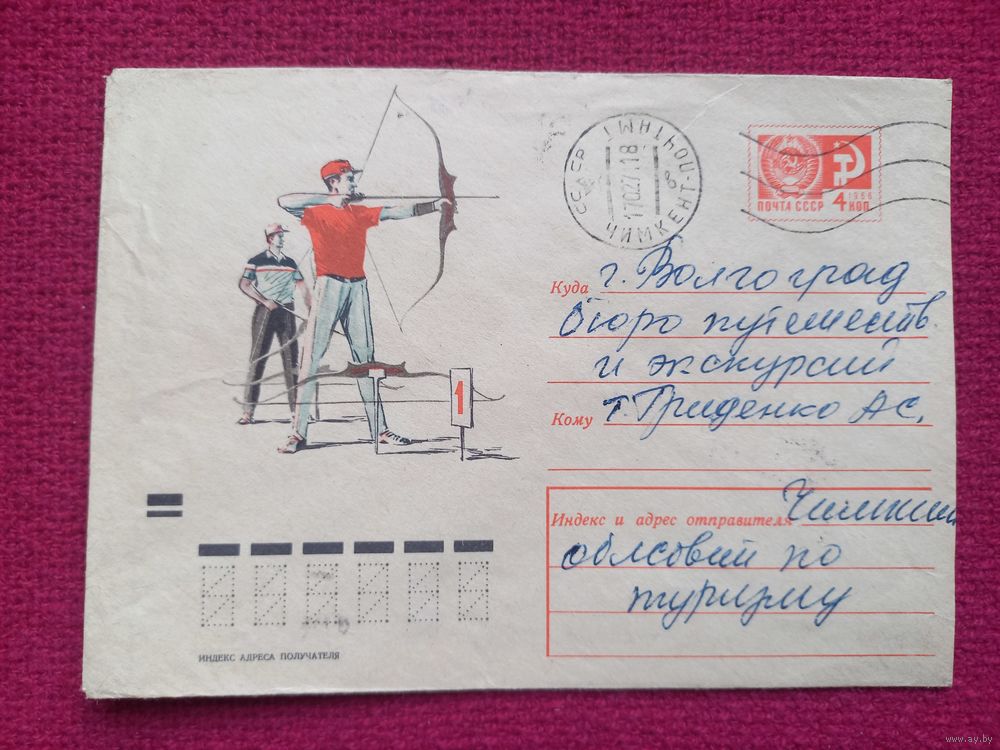 СССР ЧИМКЕНТ-ПОЧТАМТ
170277.18
ПОЧТА СССР 4 КОП.
1966
Куда г. Волгоград
бюро путешеств.
и экскурсий
Кому т. Гриденко А С.
1
Индекс и адрес отправителя
облсовет по
туризму
ИНДЕКС АДРЕСА ПОЛУЧАТЕЛЯ
www.ay.by